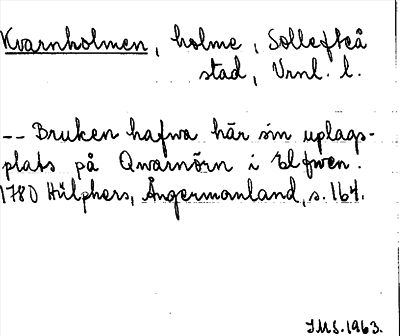 Kvarnholmen, holme, Sollefteå
stad, Vrnl. l.
-- Bruken hafwa här sin uplags-
plats på Qwarnörn i Elfwen.
1780 Hülphers, Ångermanland, s. 164.
IMS. 1963.